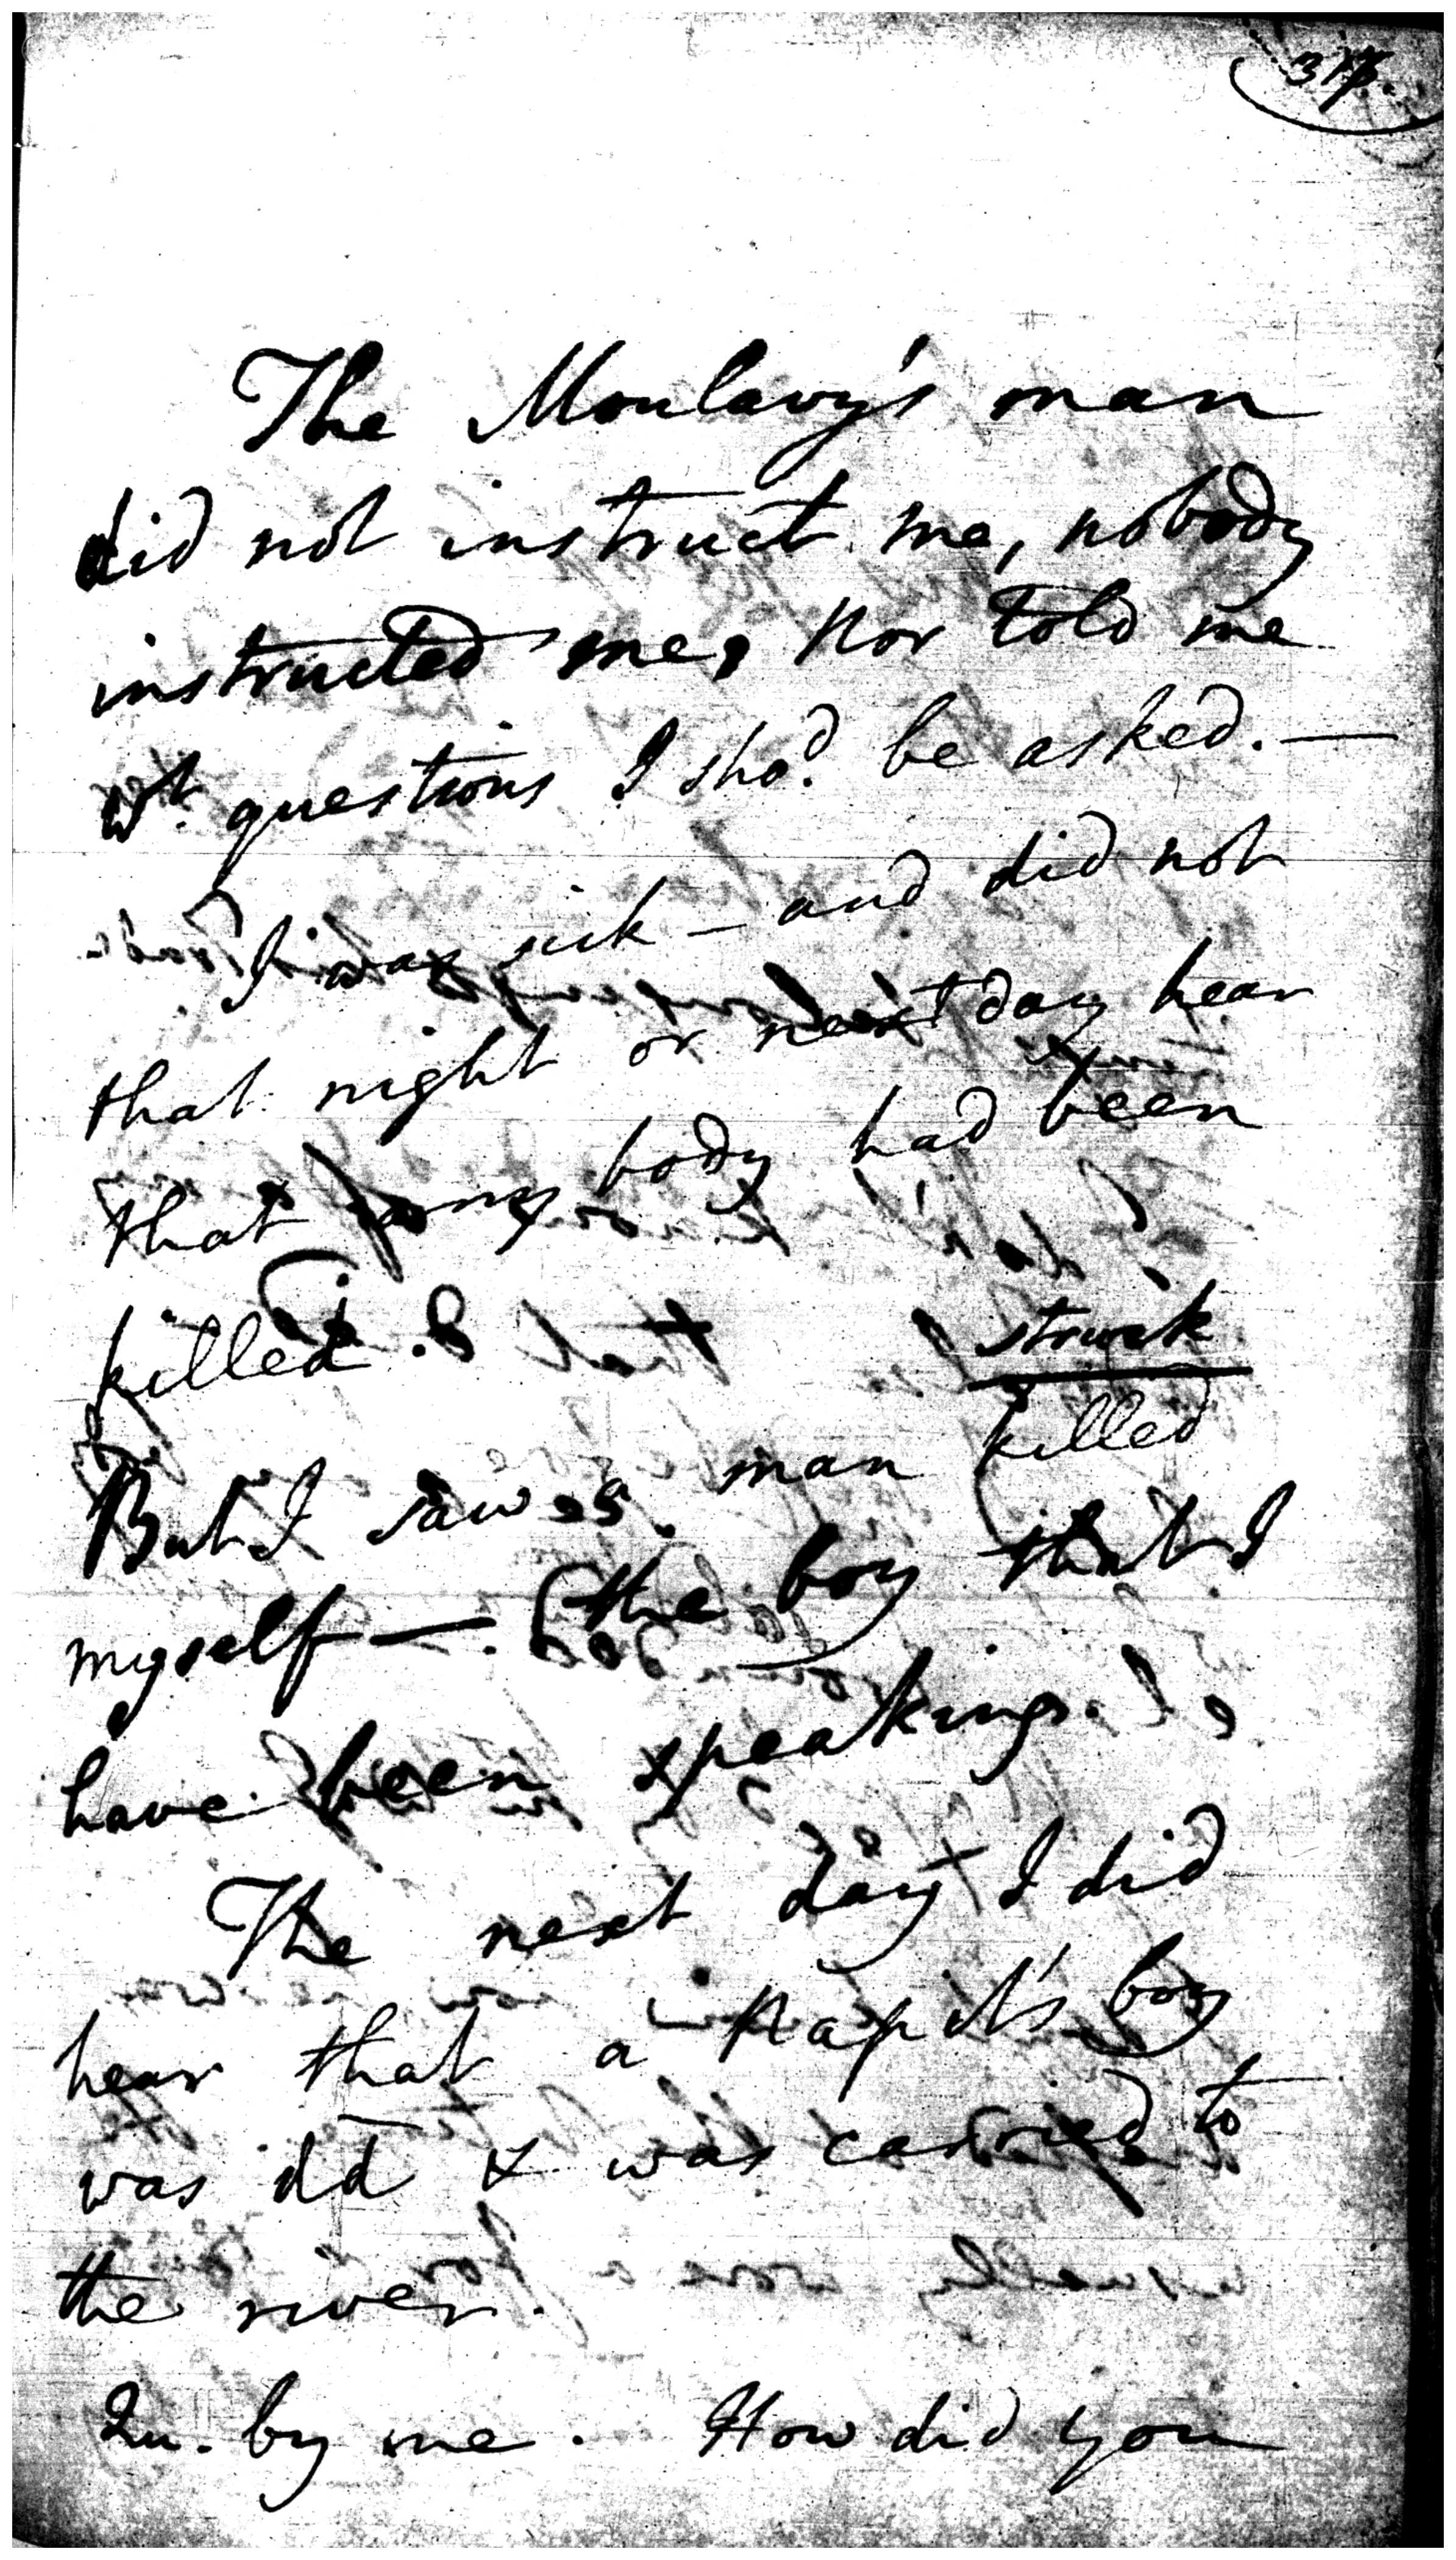 317.
The Moulavy's man
did not instruct me, nobody
instructed me, nor told me
wt. questions I shod. be asked. —
I was sick — and did not
that night or next day hear
that any body had been
killed.
struck
But I saw a man killed
myself —. the boy that I
have been speaking.
The next day I did
hear that a Napit's boy
was dd & was carried to
the river.
Qu. by me. How did you